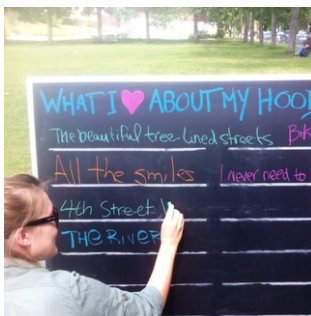 WHAT I ♥ ABOUT MY HOOD
The beautiful tree-lined streets
All the smiles
I never need to
4th Street
THE RIVER